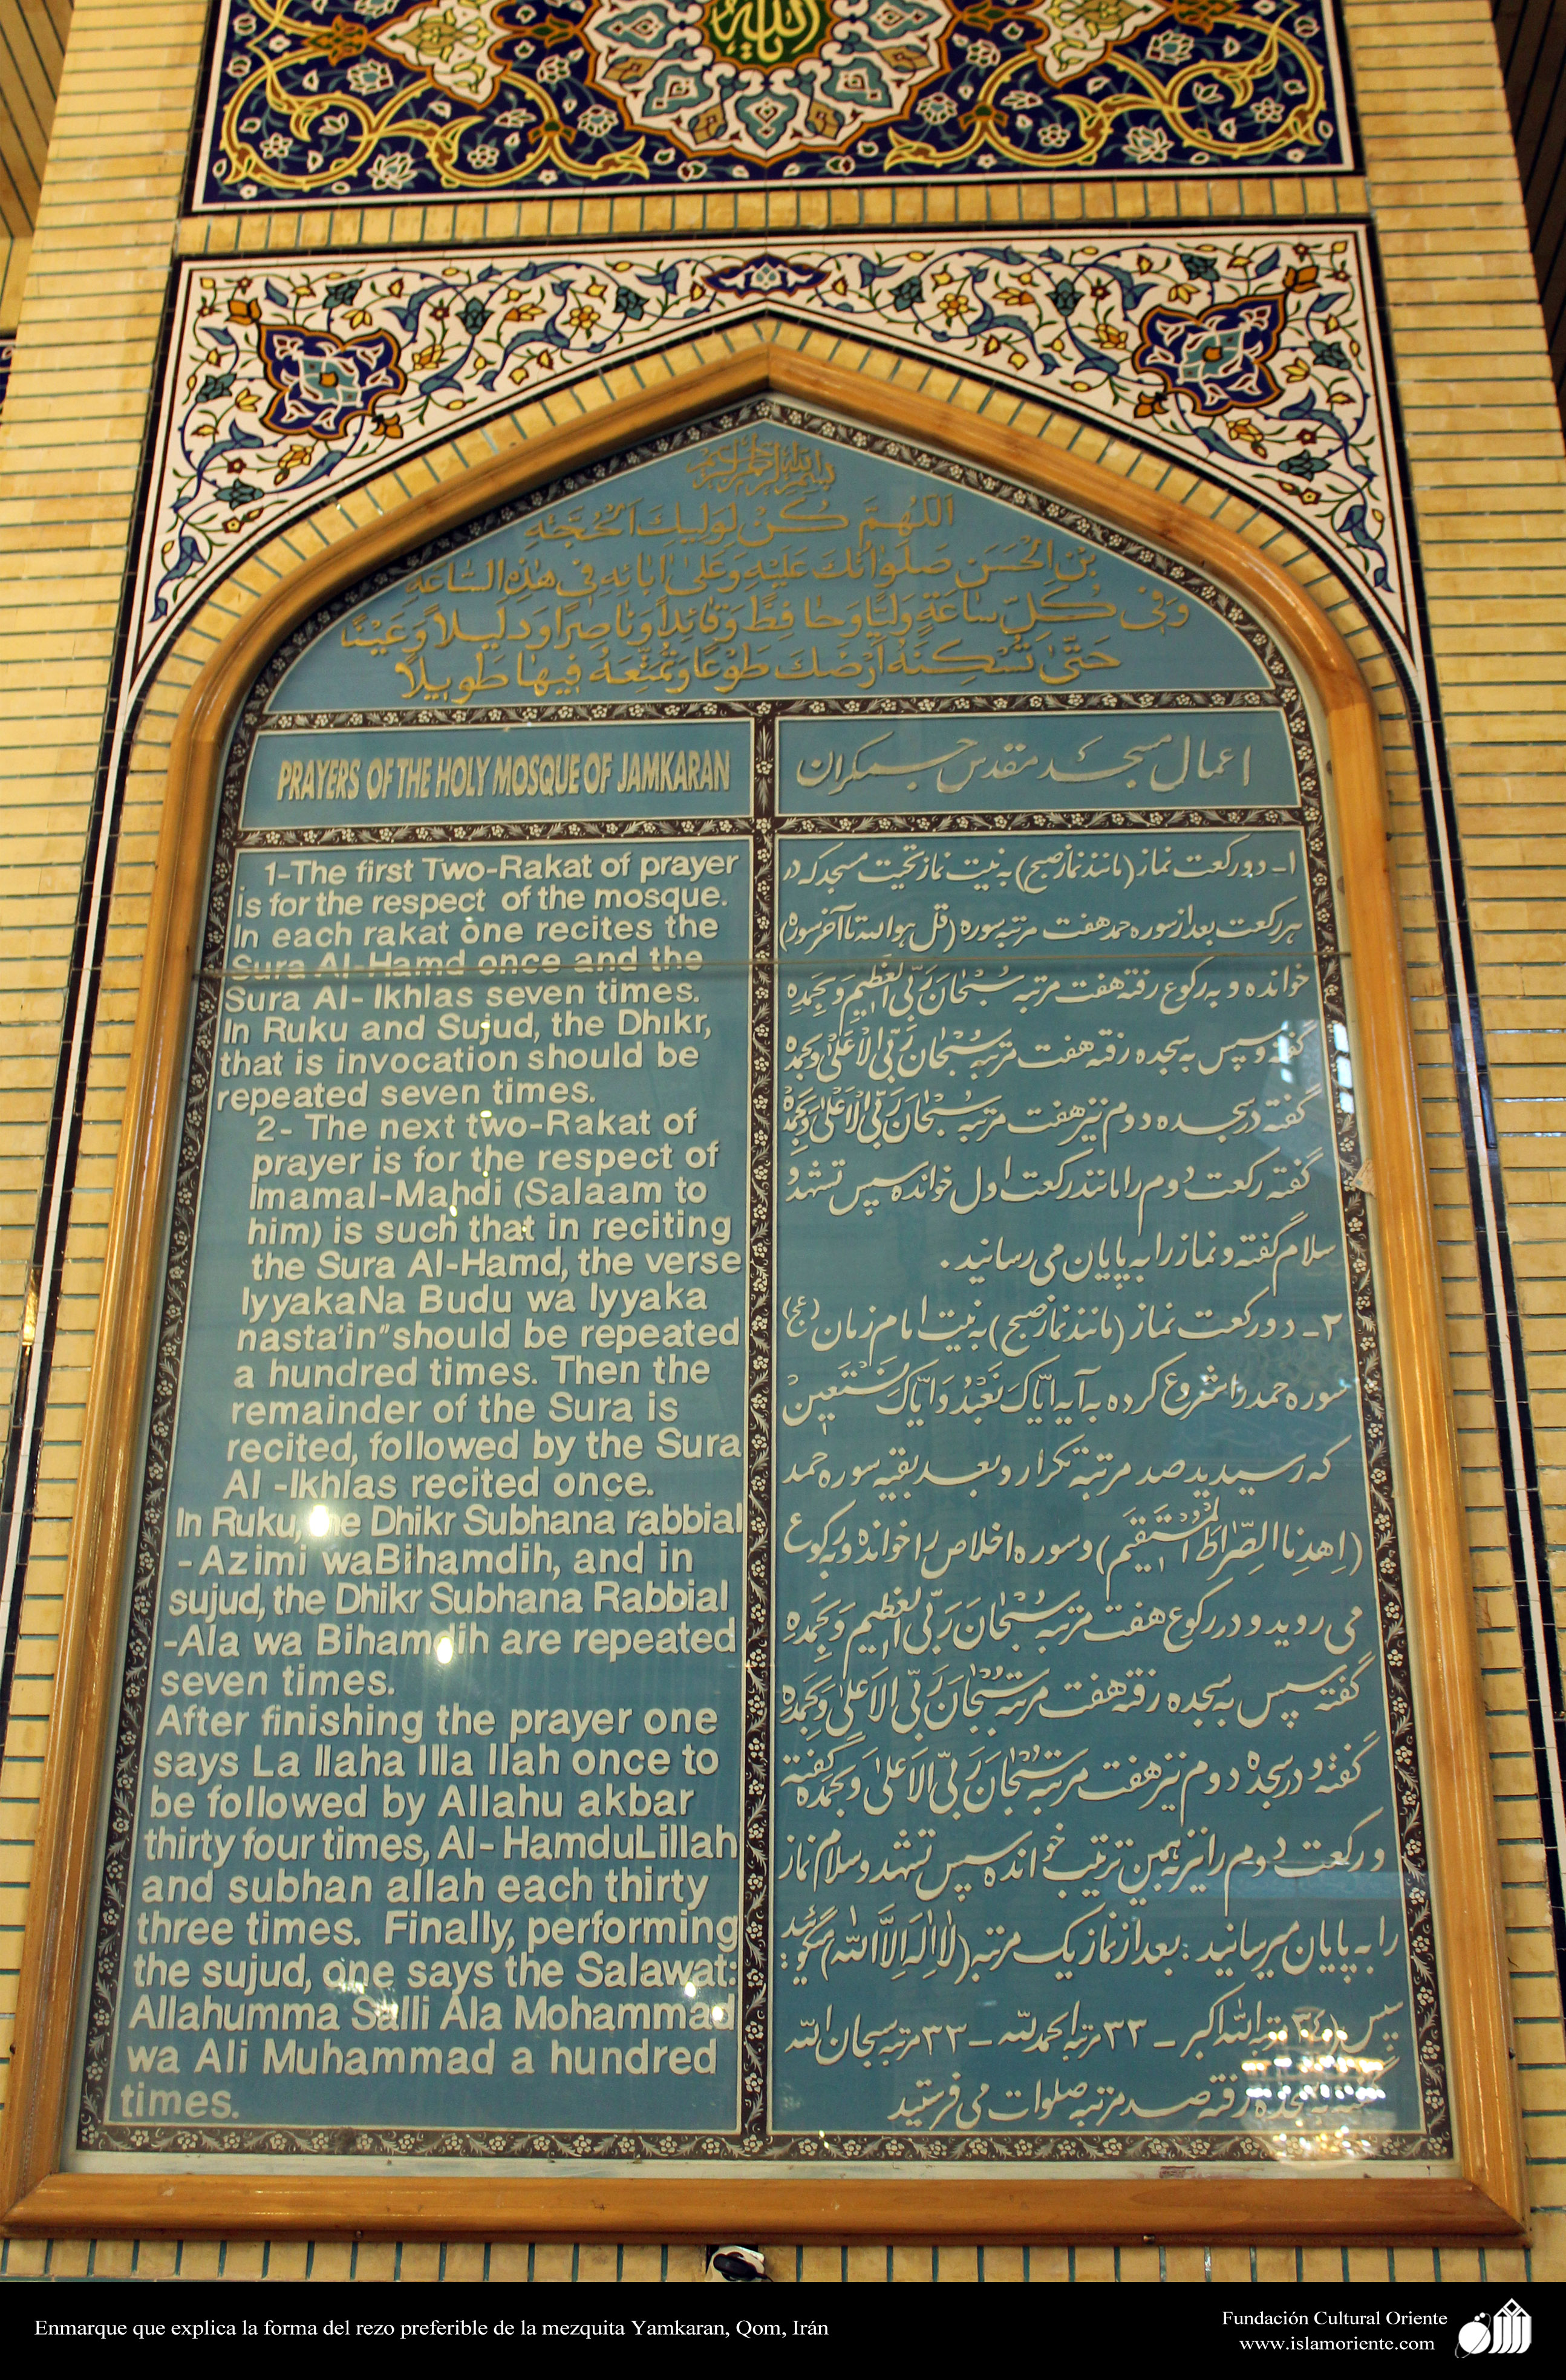 الله
بسم الله الرحمن الرحیم
اَللّهُمَّ كُنْ لِوَلِيِّكَ الْحُجَّةِ
بْنِ الْحَسَنِ صَلَواتُكَ عَلَيْهِ وَعَلى ابائِهِ فى هذِهِ السّاعَةِ
وَفى كُلِّ ساعَةٍ وَلِيّاً وَحافِظاً وَقائِداً وَناصِراً وَدَليلاً وَعَيْناً
حَتّى تُسْكِنَهُ اَرْضَكَ طَوْعاً وَتُمَتِّعَهُ فيها طَويلاً
PRAYERS OF THE HOLY MOSQUE OF JAMKARAN
1-The first Two-Rakat of prayer
is for the respect of the mosque.
In each rakat one recites the
Sura Al-Hamd once and the
Sura Al- Ikhlas seven times.
In Ruku and Sujud, the Dhikr,
that is invocation should be
repeated seven times.
2- The next two-Rakat of
prayer is for the respect of
Imamal-Mahdi (Salaam to
him) is such that in reciting
the Sura Al-Hamd, the verse
IyyakaNa Budu wa Iyyaka
nasta'in" should be repeated
a hundred times. Then the
remainder of the Sura is
recited, followed by the Sura
Al -Ikhlas recited once.
In Ruku, the Dhikr Subhana rabbial
- Azimi waBihamdih, and in
sujud, the Dhikr Subhana Rabbial
-Ala wa Bihamdih are repeated
seven times.
After finishing the prayer one
says La Ilaha Illa Ilah once to
be followed by Allahu akbar
thirty four times, Al- HamduLillah
and subhan allah each thirty
three times. Finally, performing
the sujud, one says the Salawat:
Allahumma Salli Ala Mohammad
wa Ali Muhammad a hundred
times.
اعمال مسجد مقدس جمکران
۱- دو رکعت نماز (مانند نماز صبح) به نیت نماز تحیت مسجد که در
هر رکعت بعد از سوره حمد هفت مرتبه سوره (قل هو الله تا آخر سوره)
خوانده و به رکوع رفته هفت مرتبه سُبْحانَ رَبِّیَ الْعَظیمِ وَ بِحَمْدِهِ
گفته و سپس به سجده رفته هفت مرتبه سُبْحانَ رَبِّیَ الْاَعْلی وَ بِحَمْدِهِ
گفته در سجده دوم نیز هفت مرتبه سُبْحانَ رَبِّیَ الْاَعْلی وَ بِحَمْدِهِ
گفته رکعت دوم را مانند رکعت اول خوانده سپس تشهد و
سلام گفته و نماز را به پایان می رسانید.
۲- دو رکعت نماز (مانند نماز صبح) به نیت امام زمان (عج)
سوره حمد را شروع کرده به آیه اِیّاکَ نَعْبُدُ وَ اِیّاکَ نَسْتَعینُ
که رسیدید صد مرتبه تکرار و بعد بقیه سوره حمد
(اِهْدِنَا الصِّراطَ الْمُسْتَقیمَ) و سوره اخلاص را خوانده و به رکوع
می روید و در رکوع هفت مرتبه سُبْحانَ رَبِّیَ الْعَظیمِ وَ بِحَمْدِهِ
گفته سپس به سجده رفته هفت مرتبه سُبْحانَ رَبِّیَ الْاَعْلی وَ بِحَمْدِهِ
گفته و در سجده دوم نیز هفت مرتبه سُبْحانَ رَبِّیَ الْاَعْلی وَ بِحَمْدِهِ گفته
و رکعت دوم را نیز به همین ترتیب خوانده سپس تشهد و سلام نماز
را به پایان میرسانید: بعد از نماز یک مرتبه (لا اِلهَ اِلَّا اللهُ) بگوئید:
سپس ۳۴ مرتبه الله اکبر - ۳۳ مرتبه الحمدلله - ۳۳ مرتبه سبحان الله
به سجده رفته صد مرتبه صلوات می فرستید
Enmarque que explica la forma del rezo preferible de la mezquita Yamkaran, Qom, Irán
Fundación Cultural Oriente
www.islamoriente.com